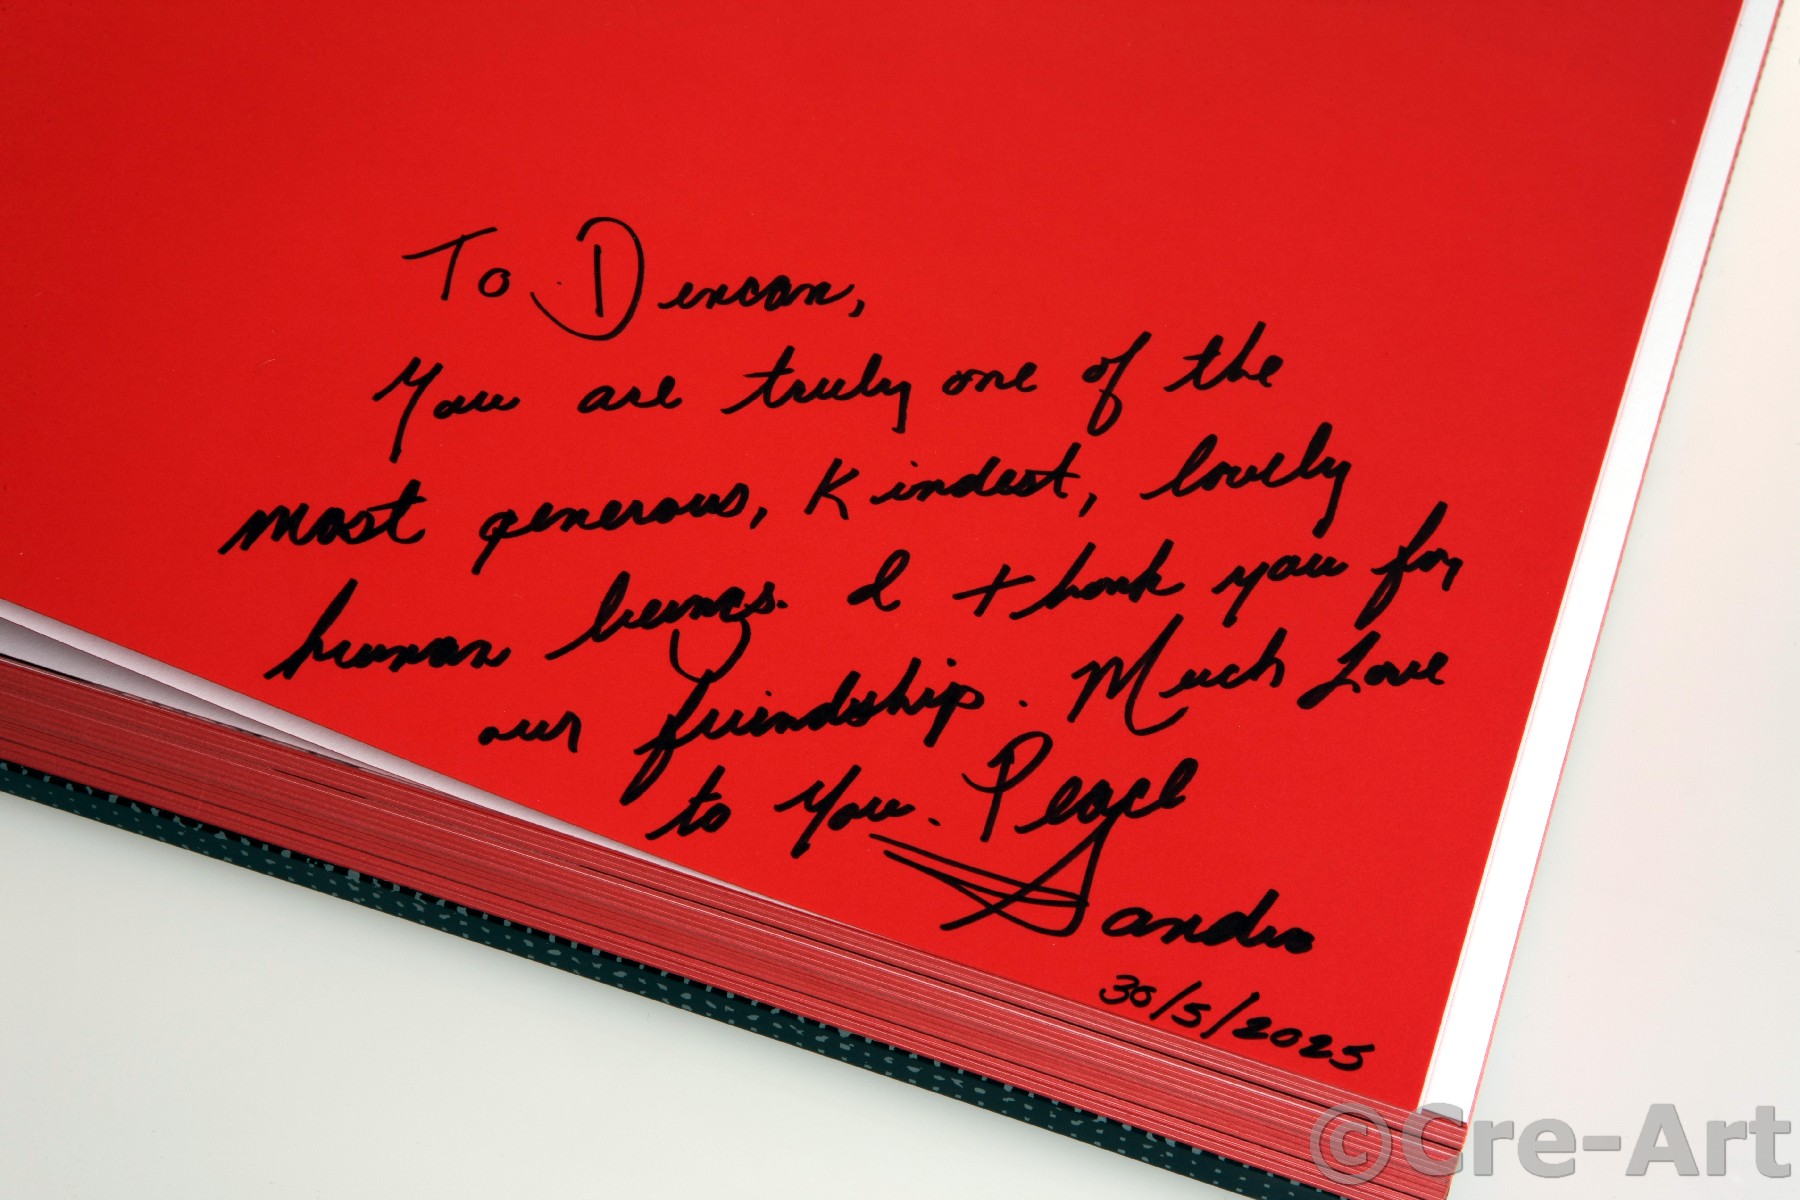 To Duncan,
You are truly one of the
most generous, Kindest, lovely
human beings. I thank you for
our friendship. Much Love
to you. Peace
Sandro
30/5/2025
©Cre-Art